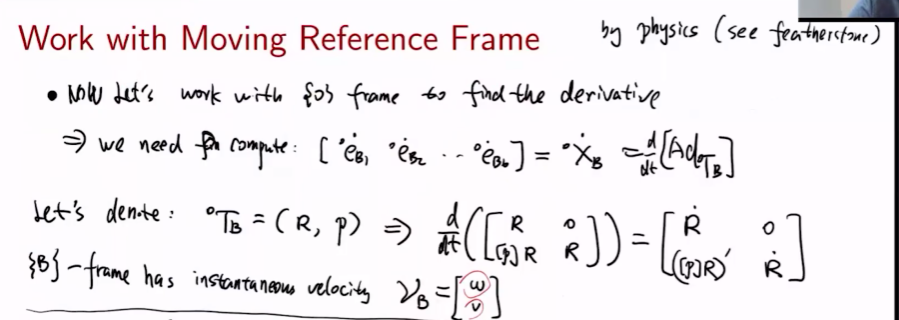 Work with Moving Reference Frame
by physics (see featherstone)
• Now let's work with {0} frame to find the derivative
⇒ we need compute: [ ⁰ė_B1 ⁰ė_B2 ... ⁰ė_B6 ] = ⁰Ẋ_B = d/dt [Ad_⁰T_B]
Let's denote: ⁰T_B = (R, p) ⇒ d/dt ([ R 0
[p]R R ]) = [ Ṙ 0
([p]R)′ Ṙ ]
{B}-frame has instantaneous velocity 𝒱_B = [ ω
v ]